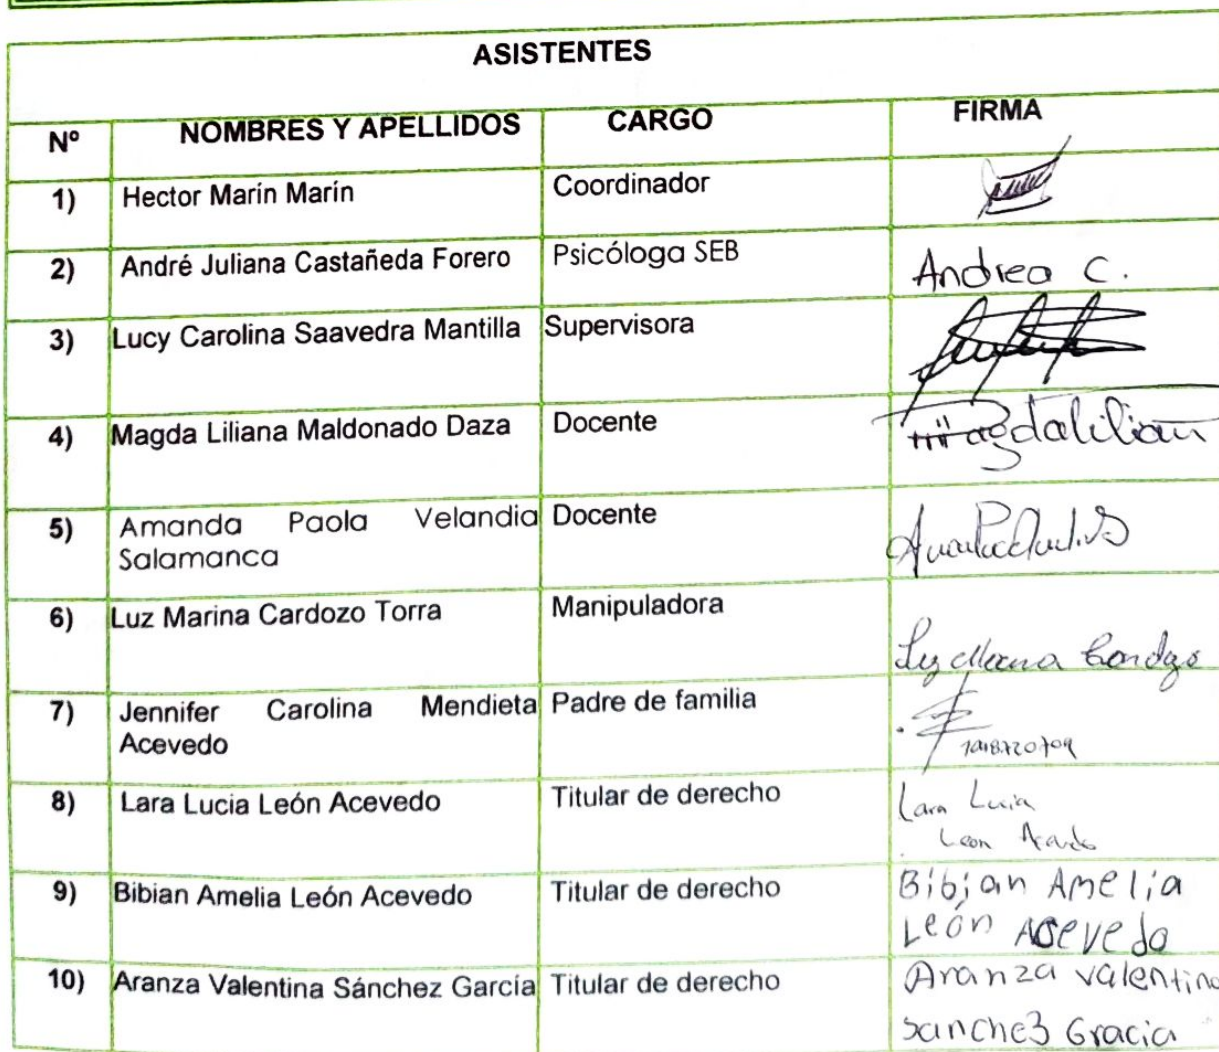 ASISTENTES
Nº NOMBRES Y APELLIDOS CARGO FIRMA
1) Hector Marín Marín Coordinador
2) André Juliana Castañeda Forero Psicóloga SEB Andrea C.
3) Lucy Carolina Saavedra Mantilla Supervisora
4) Magda Liliana Maldonado Daza Docente Magdalilian
5) Amanda Paola Velandia Docente
Salamanca
6) Luz Marina Cardozo Torra Manipuladora
7) Jennifer Carolina Mendieta Padre de familia
Acevedo
8) Lara Lucia León Acevedo Titular de derecho Lara Lucia
Leon
9) Bibian Amelia León Acevedo Titular de derecho Bibian Amelia
León Acevedo
10) Aranza Valentina Sánchez García Titular de derecho Aranza Valentina
Sanchez Gracia